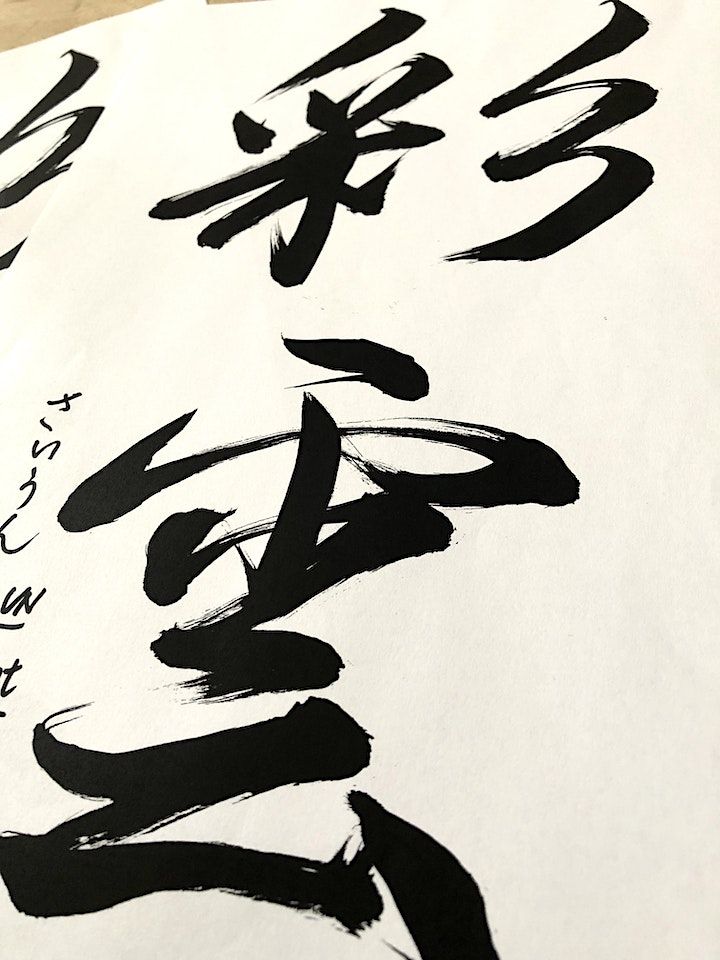 彩雲
さいうん